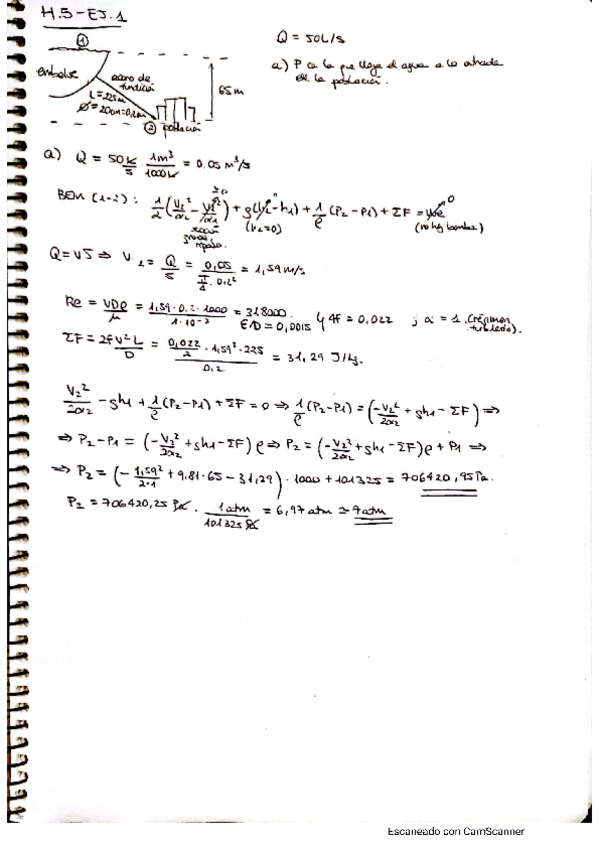 H.5-EJ.1
Q = 50L/s
a) P con la que llega el agua a la entrada de la población.
①
embalse
acero de fundición
L=225m
Ø=20cm=0,2m
65m
② población
a) Q = 50 L/s · 1m³/1000L = 0.05 m³/s
BEM (1-2): 1/2 (V₂²/α₂ - V₁²/α₁) + g(h₂-h₁) + 1/ρ (P₂-P₁) + ΣF = We
(h₂=0)
(no hay bomba)
Q=VS ⇒ V₂ = Q/S = 0,05/(π/4 · 0,2²) = 1,59m/s
Re = VDρ/μ = 1,59·0.2·1000/1·10⁻³ = 318000
ε/D = 0,0015
4f = 0,022 ; α = 1 (régimen turbulento).
ΣF = 2fV²L/D = 0,022/2 · 1,59² · 225/0,2 = 31,29 J/kg.
V₂²/2α₂ - gh₁ + 1/ρ (P₂-P₁) + ΣF = 0 ⇒ 1/ρ (P₂-P₁) = (-V₂²/2α₂ + gh₁ - ΣF) ⇒
⇒ P₂-P₁ = (-V₂²/2α₂ + gh₁ - ΣF) ρ ⇒ P₂ = (-V₂²/2α₂ + gh₁ - ΣF) ρ + P₁ ⇒
⇒ P₂ = (-1,59²/2·1 + 9,81·65 - 31,29) · 1000 + 101325 = 706420,95 Pa.
P₂ = 706420,25 Pa · 1atm/101325 Pa = 6,97 atm ≃ 7atm
Escaneado con CamScanner